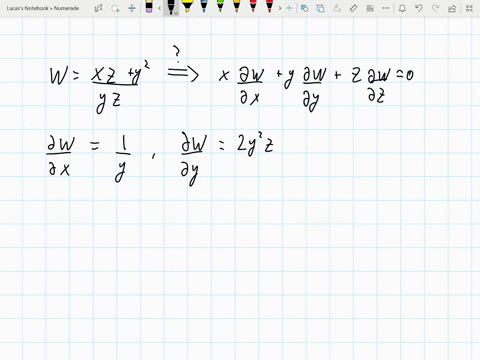 Lucas's Notebook » Numerade
W = (xz + y²)/(yz) ?⟹ x ∂W/∂x + y ∂W/∂y + z ∂W/∂z = 0
∂W/∂x = 1/y , ∂W/∂y = 2y²z